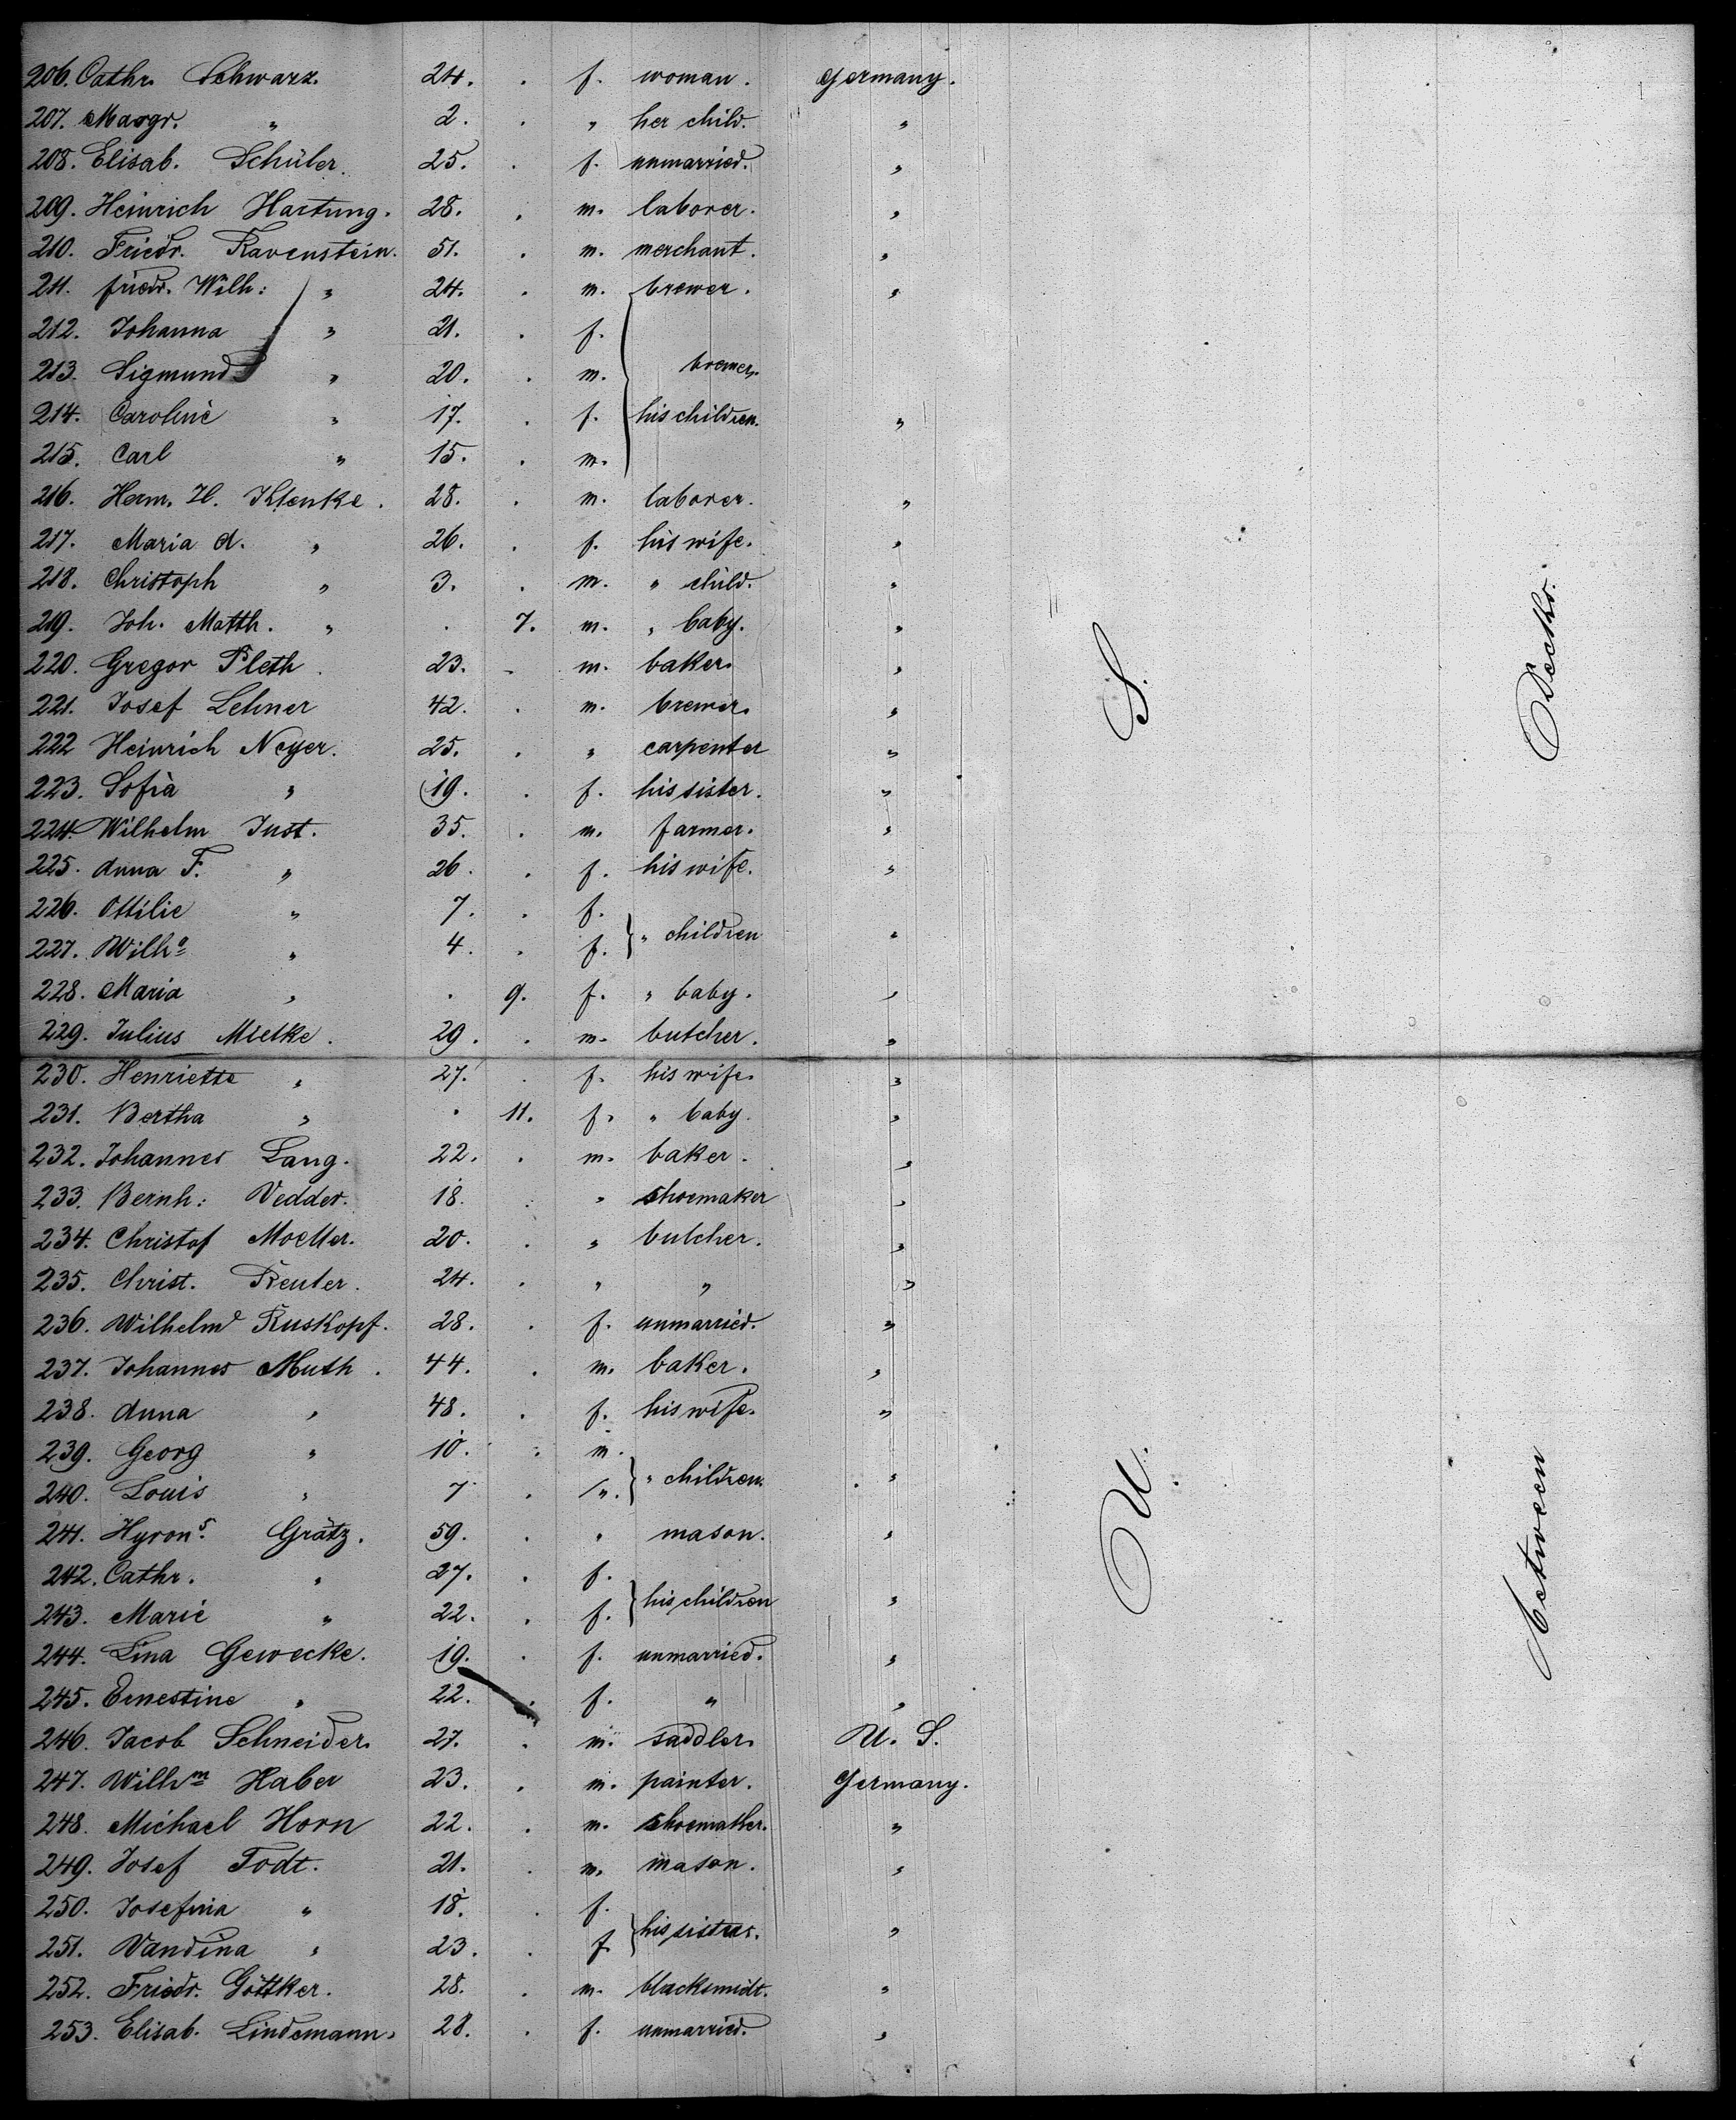 206. Cathr. Schwarz. 24. . f. woman. Germany.
207. Margr. " 2. . " her child. "
208. Elisab. Schüler. 25. . f. unmarried. "
209. Heinrich Hartung. 28. . m. laborer. "
210. Friedr. Ravenstein. 51. . m. merchant. "
211. Friedr. Wilh: " 24. . m. brewer. "
212. Johanna " 21. . f.
213. Sigmund " 20. . m. brewer.
214. Caroline " 17. . f. his children. "
215. Carl " 15. . m.
216. Herm. H. Klenke. 28. . m. laborer. "
217. Maria A. " 26. . f. his wife. "
218. Christoph " 3. . m. " child. "
219. Joh. Matth. " . 7. m. " baby. "
220. Gregor Pleth. 23. . m. baker. "
221. Josef Lehner 42. . m. brewer. "
222 Heinrich Neyer. 25. . " carpenter "
223. Sofia " 19. . f. his sister. "
224. Wilhelm Just. 35. . m. farmer. "
225. Anna F. " 26. . f. his wife. "
226. Ottilie " 7. . f.
227. Wilh.e " 4. . f. } " children "
228. Maria " . 9. f. " baby. "
229. Julius Mielke. 29. . m. butcher. "
230. Henriette " 27. . f. his wife. "
231. Bertha " . 11. f. " baby. "
232. Johannes Lang. 22. . m. baker. "
233. Bernh: Vedder. 18. . " shoemaker "
234. Christof Moeller. 20. . " butcher. "
235. Christ. Reuter. 24. . " " "
236. Wilhelme Ruskopf. 28. . f. unmarried. "
237. Johannes Muth. 44. . m. baker. "
238. Anna " 48. . f. his wife. "
239. Georg " 10. . m.
240. Louis " 7 . m. } " children "
241. Hyrons. Grätz. 59. . " mason. "
242. Cathr. " 27. . f.
243. Marie " 22. . f. } his children "
244. Lina Gewecke. 19. . f. unmarried. "
245. Ernestine " 22. . f. " "
246. Jacob Schneider. 27. . m. saddler. U. S.
247. Wilhm Haber 23. . m. painter. Germany.
248. Michael Horn 22. . m. shoemaker. "
249. Josef Todt. 21. . m. mason. "
250. Josefina " 18. . f.
251. Vandina " 23. . f. } his sisters. "
252. Friedr. Göttker. 28. . m. blacksmidt. "
253. Elisab. Lindemann. 28. . f. unmarried. "
U. S.
between Decks.